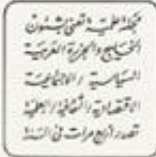 مجلة علمية تعنى بشئون
الخليج والجزيرة العربية
السياسية / الاجتماعية
الاقتصادية / الثقافية / العلمية
تصدر اربع مرات في السنة